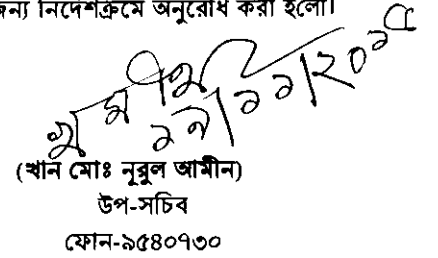 জন্য নির্দেশক্রমে অনুরোধ করা হলো।
(খান মোঃ নূরুল আমীন)
উপ-সচিব
ফোন-৯৫৪০৭৩০